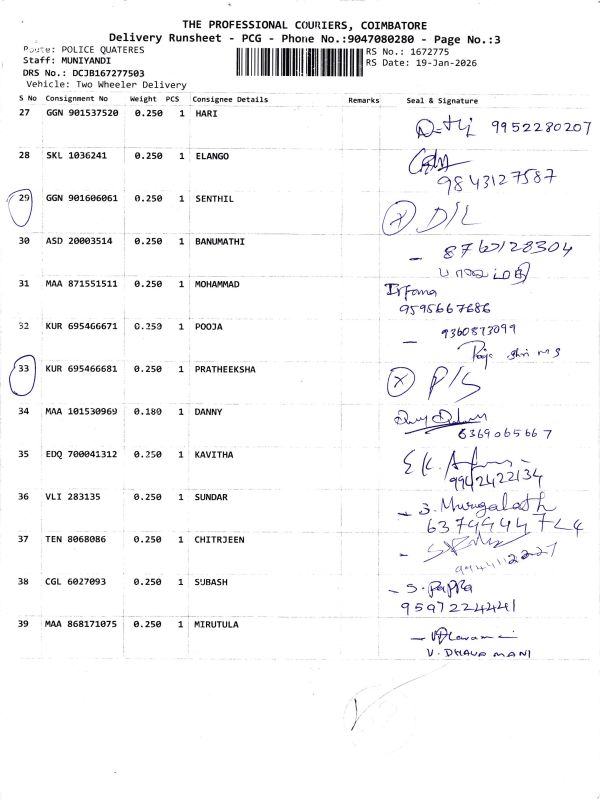 THE PROFESSIONAL COURIERS, COIMBATORE
Delivery Runsheet - PCG - Phone No.:9047080280 - Page No.:3
Route: POLICE QUATERES
RS No.: 1672775
Staff: MUNIYANDI
RS Date: 19-Jan-2026
DRS No.: DCJB167277503
Vehicle: Two Wheeler Delivery
S No Consignment No Weight PCS Consignee Details Remarks Seal & Signature
27 GGN 901537520 0.250 1 HARI
9952280207
28 SKL 1036241 0.250 1 ELANGO
9843127587
29 GGN 901606061 0.250 1 SENTHIL
X D/L
30 ASD 20003514 0.250 1 BANUMATHI
- 8760128304
31 MAA 871551511 0.250 1 MOHAMMAD
Irfana
9595667686
32 KUR 695466671 0.250 1 POOJA
- 9360873099
33 KUR 695466681 0.250 1 PRATHEEKSHA
X P/S
34 MAA 101530969 0.180 1 DANNY
6369065667
35 EDQ 700041312 0.250 1 KAVITHA
9942422134
36 VLI 283135 0.250 1 SUNDAR
37 TEN 8068086 0.250 1 CHITRJEEN
38 CGL 6027093 0.250 1 SUBASH
- S. Pappa
9597224441
39 MAA 868171075 0.250 1 MIRUTULA
V. DHAVAMANI